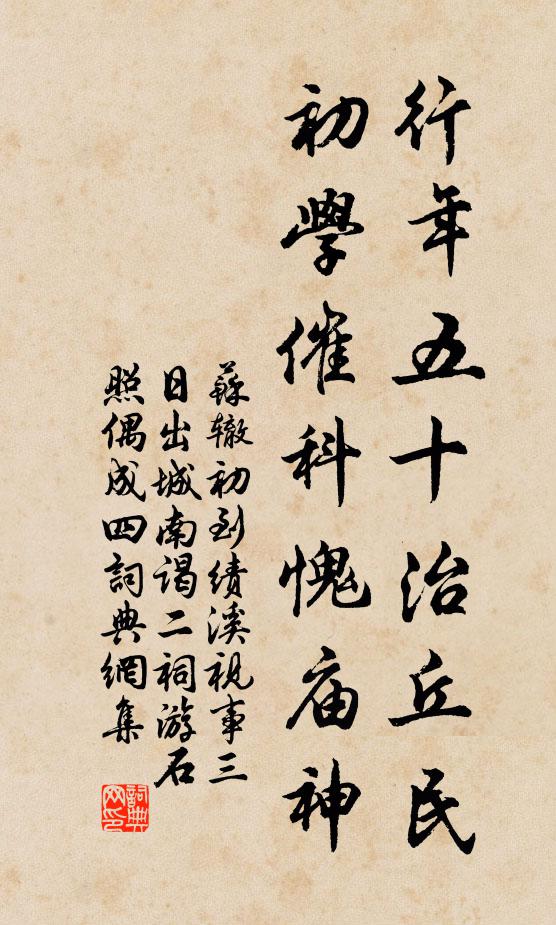 行年五十治丘民
初學催科愧庙神
蘇辙初到績溪視事三
日出城南謁二祠游石
照偶成四詞典網集
詞典网印